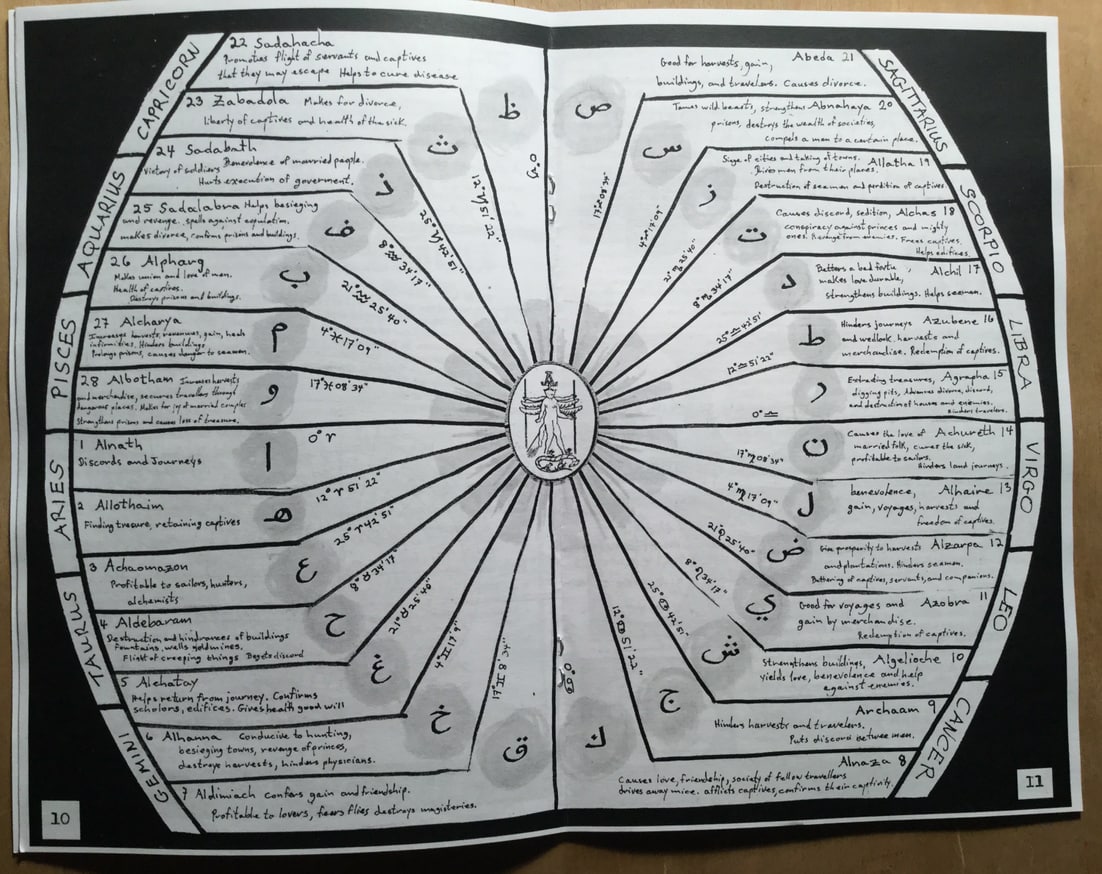 CAPRICORN
22 Sadahacha
Promotes flight of servants and captives
that they may escape Helps to cure disease
23 Zabadola Makes for divorce,
liberty of captives and health of the sick.
AQUARIUS
24 Sadabath
Benevolence of married people.
Victory of soldiers
Hurts execution of goverment.
25 Sadalabra Helps besieging
and revenge. spells against copulation,
makes divorce, confirms prisons and buildings.
26 Alpharg
Makes union and love of men.
Health of captives.
Destroys prisons and buildings.
PISCES
27 Alcharya
Increases harvests, revenues, gain, heals
infirmities. Hinders buildings
Prolongs prisons, causes danger to seamen.
28 Albotham Increases harvests
and merchandise, secures travellers through
dangerous places. Makes for joy of married couples
Strengthens prisons and causes loss of treasure.
ARIES
1 Alnath
Discords and Journeys
2 Allothaim
Finding tresure, retaining captives
3 Achaomazon
Profitable to sailors, hunters,
alchemists
TAURUS
4 Aldebaram
Destruction and hindrances of buildings
fountains, wells goldmines,
Flight of creeping things Begets discord
5 Alchatay
Helps return from journey. Confirms
scholars, edifices. Gives health good will
GEMINI
6 Alhanna Conducive to hunting,
besieging towns, revenge of princes,
destroys harvests, hinders physicians.
7 Aldimiach Confers gain and friendship.
Profitable to lovers, fears flies destroys magisteries.
10
ظ
ث
ذ
ف
ب
م
و
ا
ه
ع
ح
غ
خ
ق
0°♑
12°♑51'22"
25°♑42'51"
8°♒34'17"
21°♒25'40"
4°♓17'09"
17°♓08'34"
0°♈
12°♈51'22"
25°♈42'51"
8°♉34'17"
21°♉25'40"
4°♊17'9"
17°♊8'34"
SAGITTARIUS
Abeda 21
Good for harvests, gain,
buildings, and travelers. Causes divorce.
Tames wild beasts, strengthens Abnahaya 20
prisons, destroys the wealth of societies,
Compels a man to a certain place.
SCORPIO
Siege of cities and taking of towns. Allatha 19
Drives men from their places,
Destruction of seamen and perdition of captives
Causes discord, sedition, Alchas 18
conspiracy against princes and mighty
ones. Revenge from enemies. Frees captives,
Helps edifices.
Betters a bad fortune, Alchil 17
makes love durable,
strengthens buildings. Helps seamen.
LIBRA
Hinders journeys Azubene 16
and wedlock, harvests and
merchandise. Redemption of captives.
Extracting treasures, Agrapha 15
digging pits, Advances divorce, discord,
and destruction of houses and enemies.
Hinders travelers.
VIRGO
Causes the love of Achureth 14
married folk, cures the sick,
profitable to sailors.
Hinders land journeys.
benevolence, Alhaire 13
gain, voyages, harvests and
freedom of captives.
Give prosperity to harvests Alzarpa 12
and plantations. Hinders seamen.
Bettering of captives, servants, and companions.
LEO
Good for voyages and Azobra 11
gain by merchandise.
Redemption of captives.
Strengthens buildings, Algelioche 10
yields love, benevolence and help
against enemies.
CANCER
Archaam 9
Hinders harvests and travelers.
Puts discord between men.
Alnaza 8
Causes love, friendship, society of fellow travellers
drives away mice. afflicts captives, confirms their captivity.
11
ص
س
ز
ت
د
ط
ر
ن
ل
ض
ي
ش
ج
ك
17°♐08'34"
4°♐17'09"
21°♏25'40"
8°♏34'17"
25°♎42'51"
12°♎51'22"
0°♎
17°♍08'34"
4°♍17'09"
21°♌25'40"
8°♌34'17"
25°♋42'51"
12°♋51'22"
0°♋